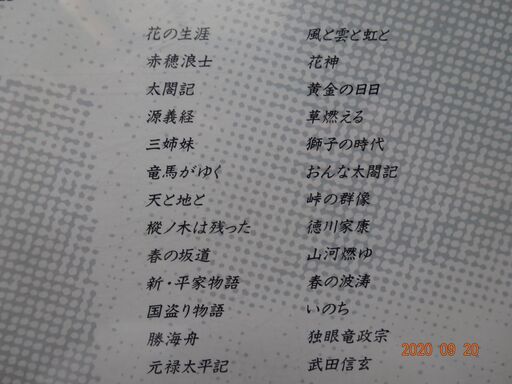 花の生涯
赤穂浪士
太閤記
源義経
三姉妹
竜馬がゆく
天と地と
樅ノ木は残った
春の坂道
新・平家物語
国盗り物語
勝海舟
元禄太平記
風と雲と虹と
花神
黄金の日日
草燃える
獅子の時代
おんな太閤記
峠の群像
徳川家康
山河燃ゆ
春の波涛
いのち
独眼竜政宗
武田信玄
2020 09 20